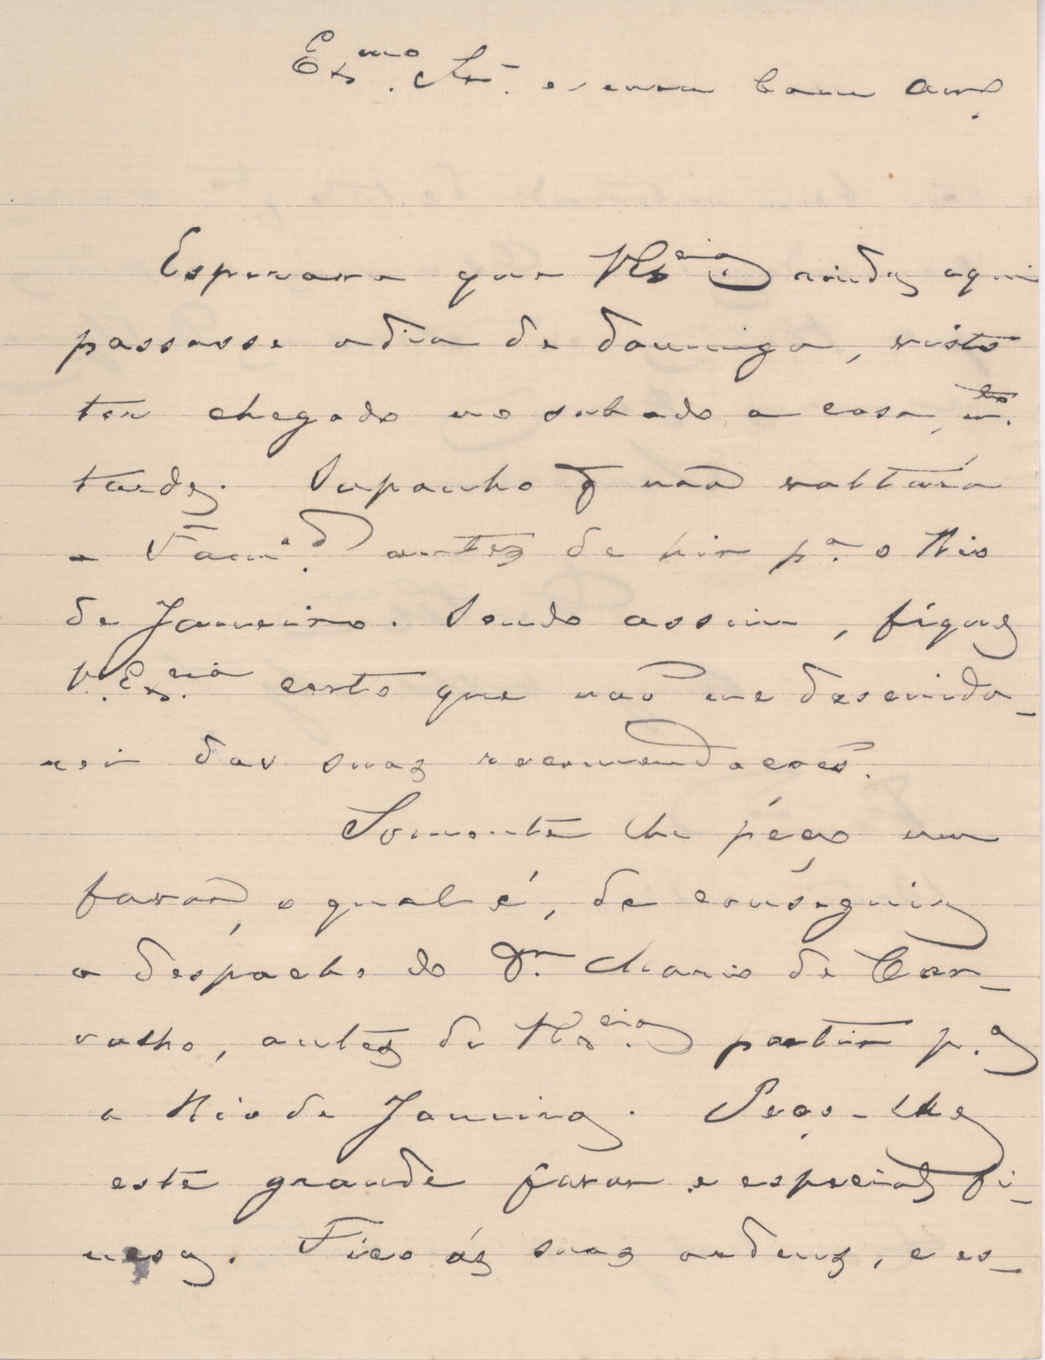 Exmo. Snr. e meu bom Amo.
Esperava que V Excia. ainda aqui
passasse o dia de domingo, visto
ter chegado no sabado a casa, mto.
tarde. Supponho q não voltará
a Fam.a antes de hir pa. o Rio
de Janeiro. Sendo assim, fique
V. Excia. certo que não me descuida-
rei das suas recomendações.
Somente lhe péço um
favor, o qual é, de conseguir
o despacho do Dr. Mario de Car-
valho, antes de V Excia. partir pa.
o Rio de Janeiro. Peço-lhe
este grande favor e especial fi-
nesa. Fico ás suas ordens, e es-